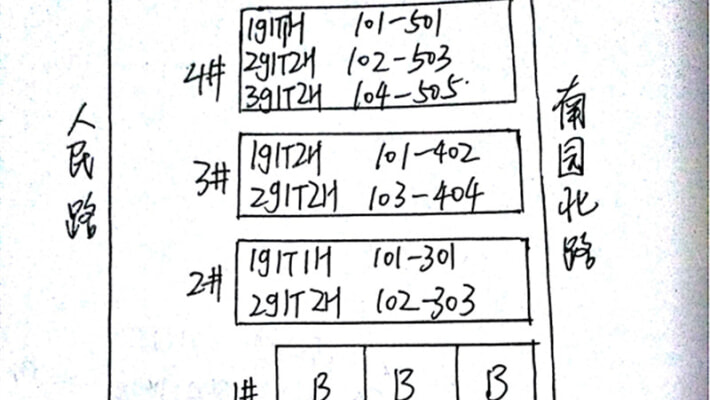 人民路
南园北路
4#
1g1T1H 101-501
2g1T2H 102-503
3g1T2H 104-505
3#
1g1T2H 101-402
2g1T2H 103-404
2#
1g1T1H 101-301
2g1T2H 102-303
1#
B B B